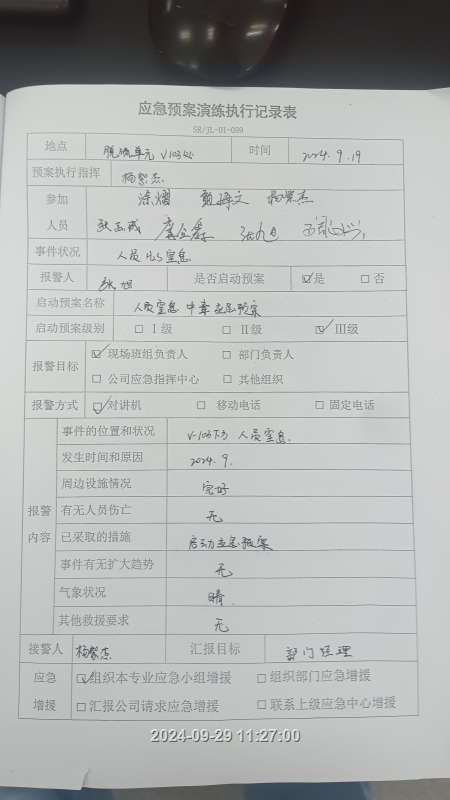 应急预案演练执行记录表
SR/JL-01-099
地点 脱硫单元 V103处 时间 2024.9.19
预案执行指挥 杨紫杰
参加 杨紫杰
人员
事件状况 人员 H2S 窒息
报警人 张旭 是否启动预案 ☑是 □否
启动预案名称 人员窒息 中毒应急预案
启动预案级别 □ Ⅰ级 □ Ⅱ级 ☑ Ⅲ级
报警目标 ☑ 现场班组负责人 □ 部门负责人
□ 公司应急指挥中心 □ 其他组织
报警方式 ☑对讲机 □ 移动电话 □ 固定电话
报警内容
事件的位置和状况 V-103下方 人员窒息.
发生时间和原因 2024.9.
周边设施情况 完好
有无人员伤亡 无
已采取的措施 启动应急预案
事件有无扩大趋势 无
气象状况 晴.
其他救援要求 无
接警人 杨紫杰 汇报目标 部门经理
应急 ☑组织本专业应急小组增援 □组织部门应急增援
增援 □汇报公司请求应急增援 □联系上级应急中心增援
2024-09-29 11:27:00